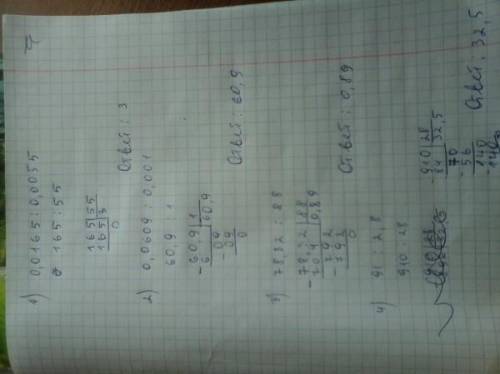 1) 0,0165 : 0,0055
165 : 55
165 | 55
165 | 3
0
Ответ: 3
2) 0,0609 : 0,001
60,9 : 1
-60,9 | 1
6 | 60,9
-09
09
0
Ответ: 60,9
3) 78,32 : 88
-78,32 | 88
704 | 0,89
-792
792
0
Ответ: 0,89
4) 91 : 2,8
910 : 28
-910 | 28
84 | 32,5
-70
56
-140
140
Ответ: 32,5